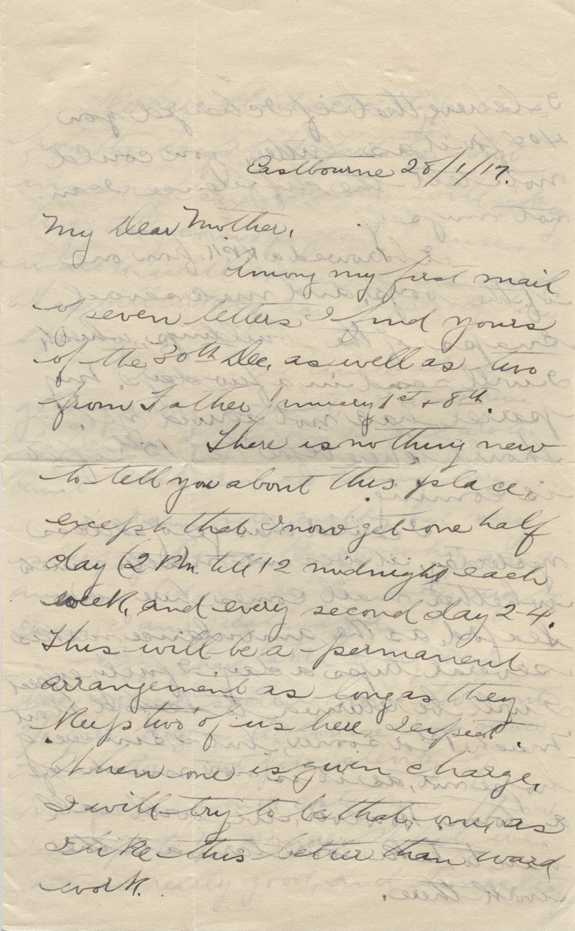 Eastbourne 28/1/17.
My Dear Mother,
Among my first mail
of seven letters I find yours
of the 30th Dec, as well as two
from Father January 1st & 8th.
There is nothing new
to tell you about this place
except that I now get one half
day (2 P.m. till 12 midnight) each
week, and every second day 2-4.
This will be a permanent
arrangement as long as they
keep two of us here I expect.
When one is given charge,
I will try to be that one, as
I like this better than ward
work.